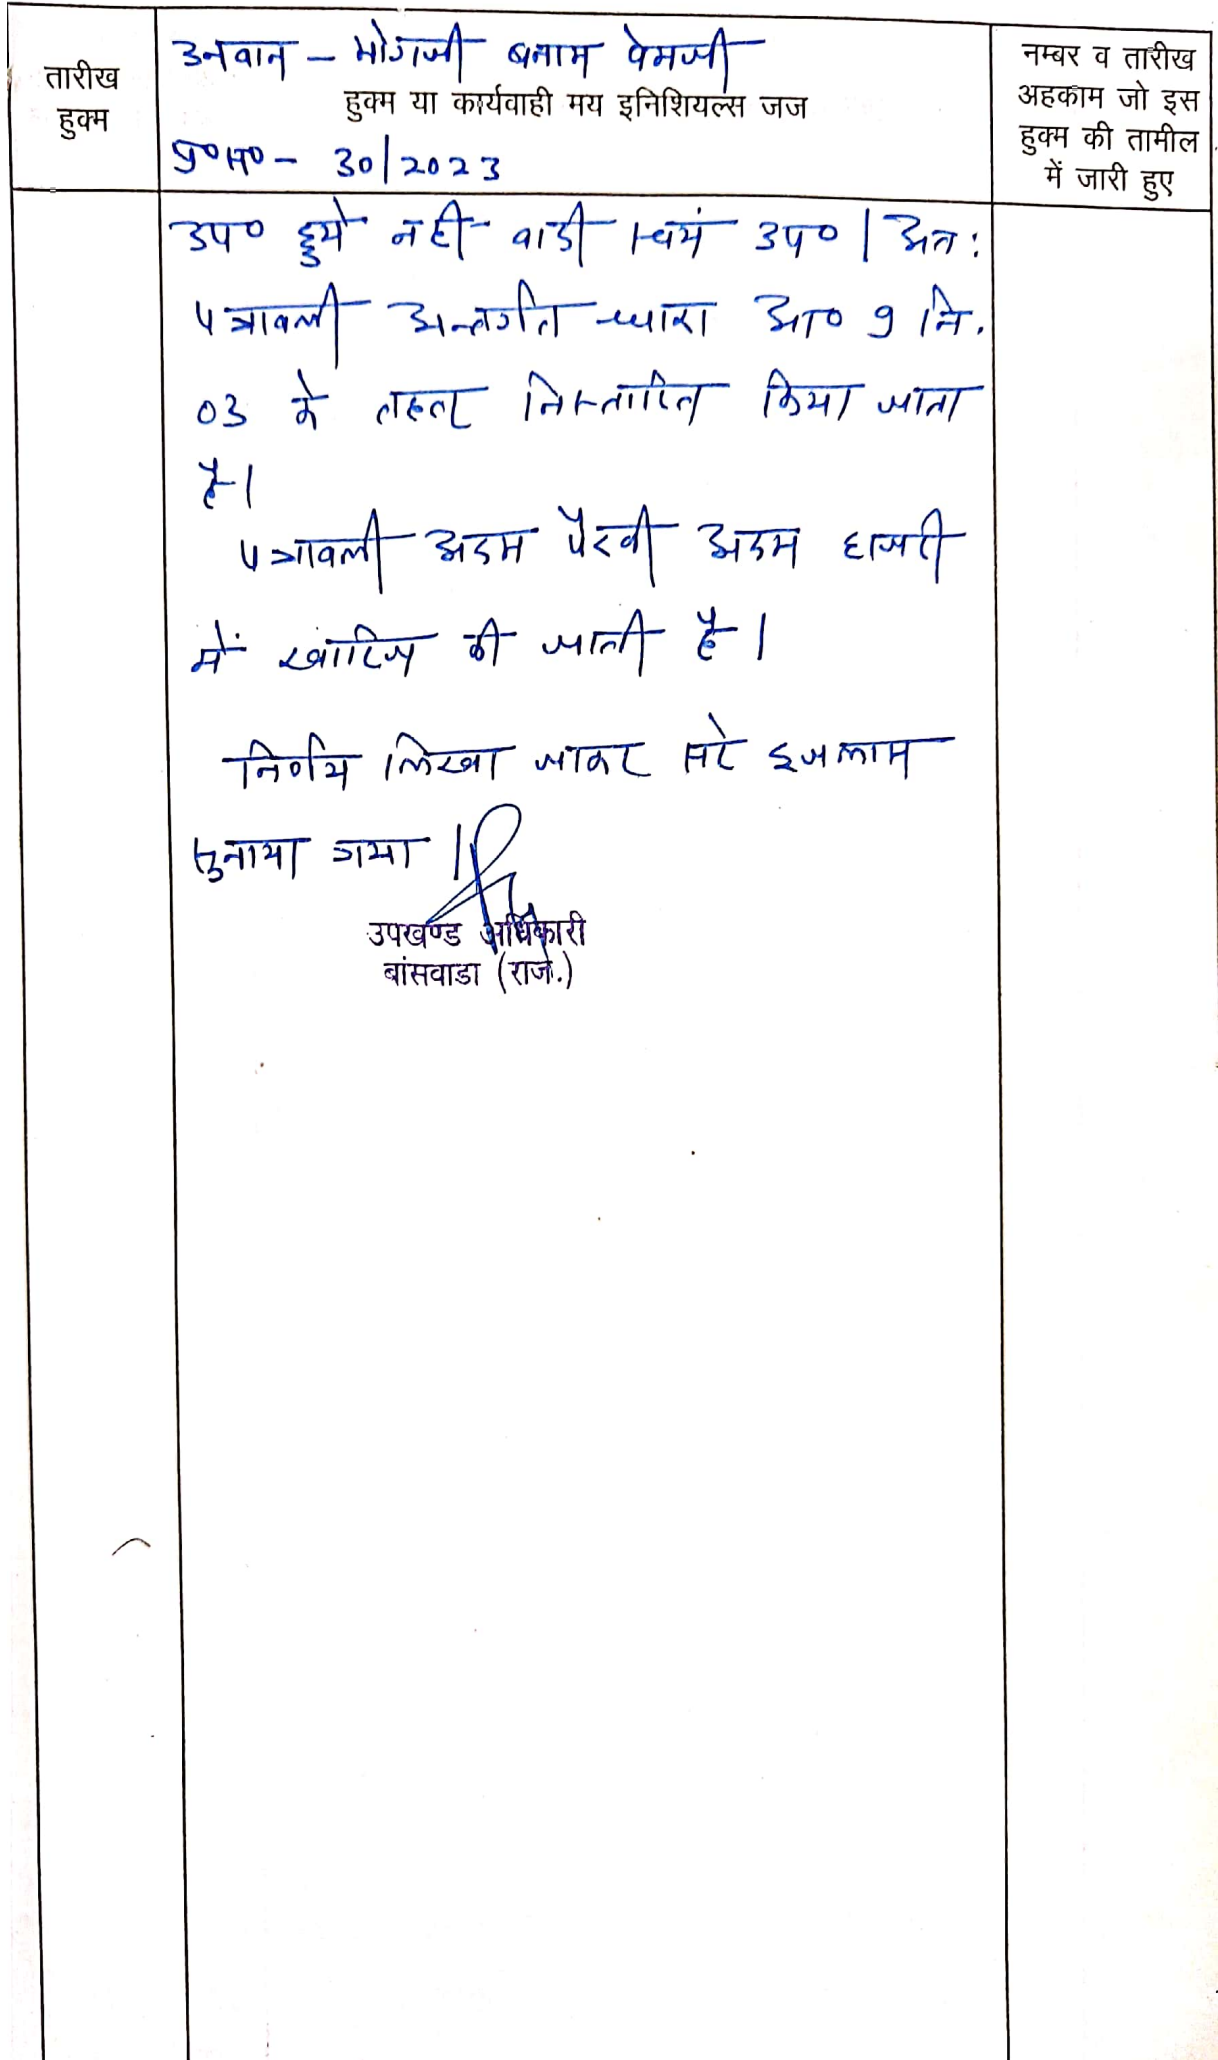 तारीख
हुक्म
उनवान - मोगजी बनाम पेमजी
हुक्म या कार्यवाही मय इनिशियल्स जज
प्र०स० - 30/2023
नम्बर व तारीख
अहकाम जो इस
हुक्म की तामील
में जारी हुए
उप० हुये नही वादी स्वयं उप० । अतः
पत्रावली अन्तर्गत धारा आ० 9 नि.
03 के तहत निस्तारित किया जाता
है।
पत्रावली अदम पैरवी अदम हाजरी
में खारिज की जाती है।
निर्णय लिखा जाकर सरे इजलास
सुनाया गया ।
उपखण्ड अधिकारी
बांसवाडा (राज.)